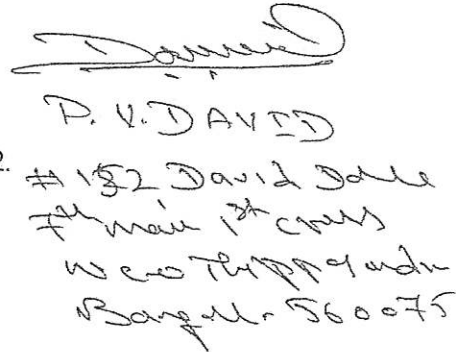 David
P. V. DAVID
2. #152 David Dale
7th main 1st cross
New Thippasandra
Bangal- 560075